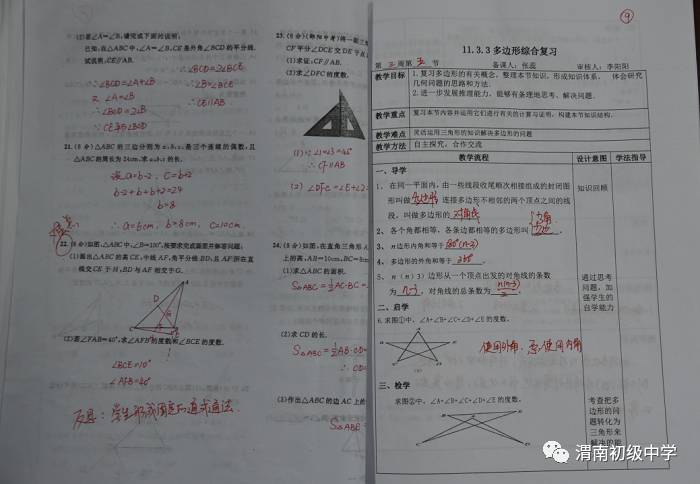 (2)若∠A=∠B,请完成下面的说明:
已知:在△ABC中,∠A=∠B,CE是外角∠BCD的平分线.
试说明:CE∥AB.
∵∠BCD=∠A+∠B
又∠A=∠B
∴∠BCD=2∠B
∵CE平分∠BCD
∴∠BCD=2∠BCE
∴∠B=∠BCE
∴CE∥AB
21.(8分)△ABC的三边分别为a,b,c,是三个连续的偶数,且
△ABC的周长为24cm,求a,b,c的长.
设a=b-2,c=b+2
b-2+b+b+2=24
b=8
∴a=6cm,b=8cm,c=10cm.
22.(8分)如图,△ABC中,∠B=100°,按要求完成画图并解答问题:
(1)画出△ABC的高CE,中线AF,角平分线BD,且AF所在直
线交CE于H,BD与AF相交于G.
(2)若∠FAB=40°,求∠AFB的度数和∠BCE的度数.
∠BCE=10°
∠AFB=40°
反思:学生形成固定的通式通法.
23.(8分)
CF平分∠DCE交DE于点
(1)求证:CF∥AB.
(2)求∠DFC的度数.
(1)∵∠1=∠3=45°
∴CF∥AB
24.(8分)如图,在直角三角形A
上的高,AB=10cm,BC=8
(1)求△ABC的面积.
(2)求CD的长.
(3)作出△ABC的边AC上的
⑨
11.3.3多边形综合复习
第三周第五节 备课人:张蕊 审核人:李阳阳
教学目标
1.复习多边形的有关概念,整理本节知识,形成知识体系. 体会研究
几何问题的思路和方法.
2.进一步发展推理能力,能够有条理地思考、解决问题.
教学重点 复习本节内容并运用它们进行有关的计算与证明,构建本节知识结构.
教学难点 灵活运用三角形的知识解决多边形的问题
教学方法 自主探究,合作交流
教学流程 设计意图 学法指导
一、导学
1、在同一平面内,由一些线段收尾顺次相接组成的封闭图
形叫做多边形 连接多边形不相邻的两个顶点之间的线
段,叫做多边形的对角线
2、各个角都相等,各条边都相等的多边形叫正多边形.
3、n边形内角和等于180°(n-2)
4、多边形的外角和等于360°
5、n(n〉3)边形从一个顶点出发的对角线的条数
为n-3,对角线的总条数为n(n-3)/2.
知识回顾
通过思考
问题,加
强学生的
自学能力
二、启学
6.求图①中,∠A+∠B+∠C+∠D+∠E的度数.
使用外角,不使用内角
三、检学
求图②中,∠A+∠B+∠C+∠D+∠E的度数.
考查把多
边形的问
题转化为
三角形来
解决的能
渭南初级中学